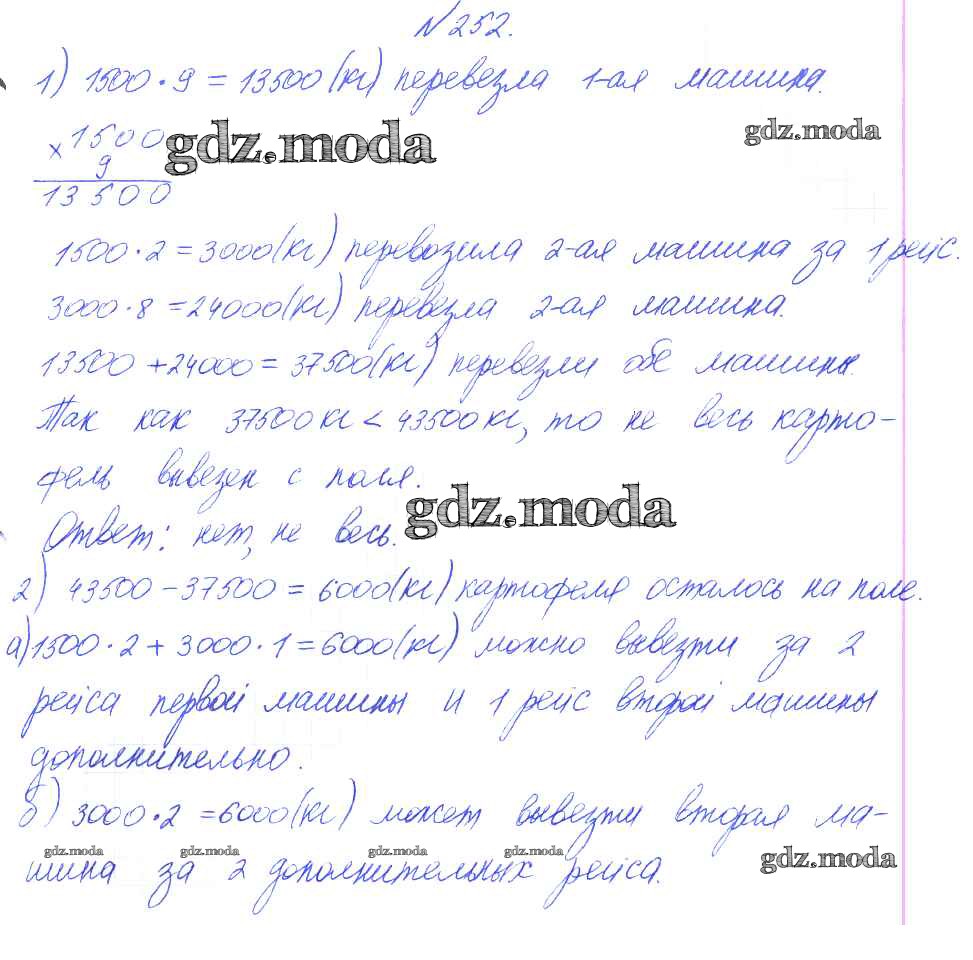 №252.
1) 1500·9 = 13500 (кг) перевезла 1-ая машина.
×1500
9
13500
gdz.moda
gdz.moda
1500·2 = 3000(кг) перевозила 2-ая машина за 1 рейс.
3000·8 = 24000(кг) перевезла 2-ая машина.
13500 + 24000 = 37500(кг) перевезли обе машины.
Так как 37500 кг < 43500 кг, то не весь карто-
фель вывезен с поля.
gdz.moda
Ответ: нет, не весь.
2) 43500 – 37500 = 6000(кг) картофеля осталось на поле.
а) 1500·2 + 3000·1 = 6000(кг) можно вывезти за 2
рейса первой машины и 1 рейс второй машины
дополнительно.
б) 3000·2 = 6000(кг) может вывезти вторая ма-
gdz.moda gdz.moda gdz.moda gdz.moda
gdz.moda
шина за 2 дополнительных рейса.